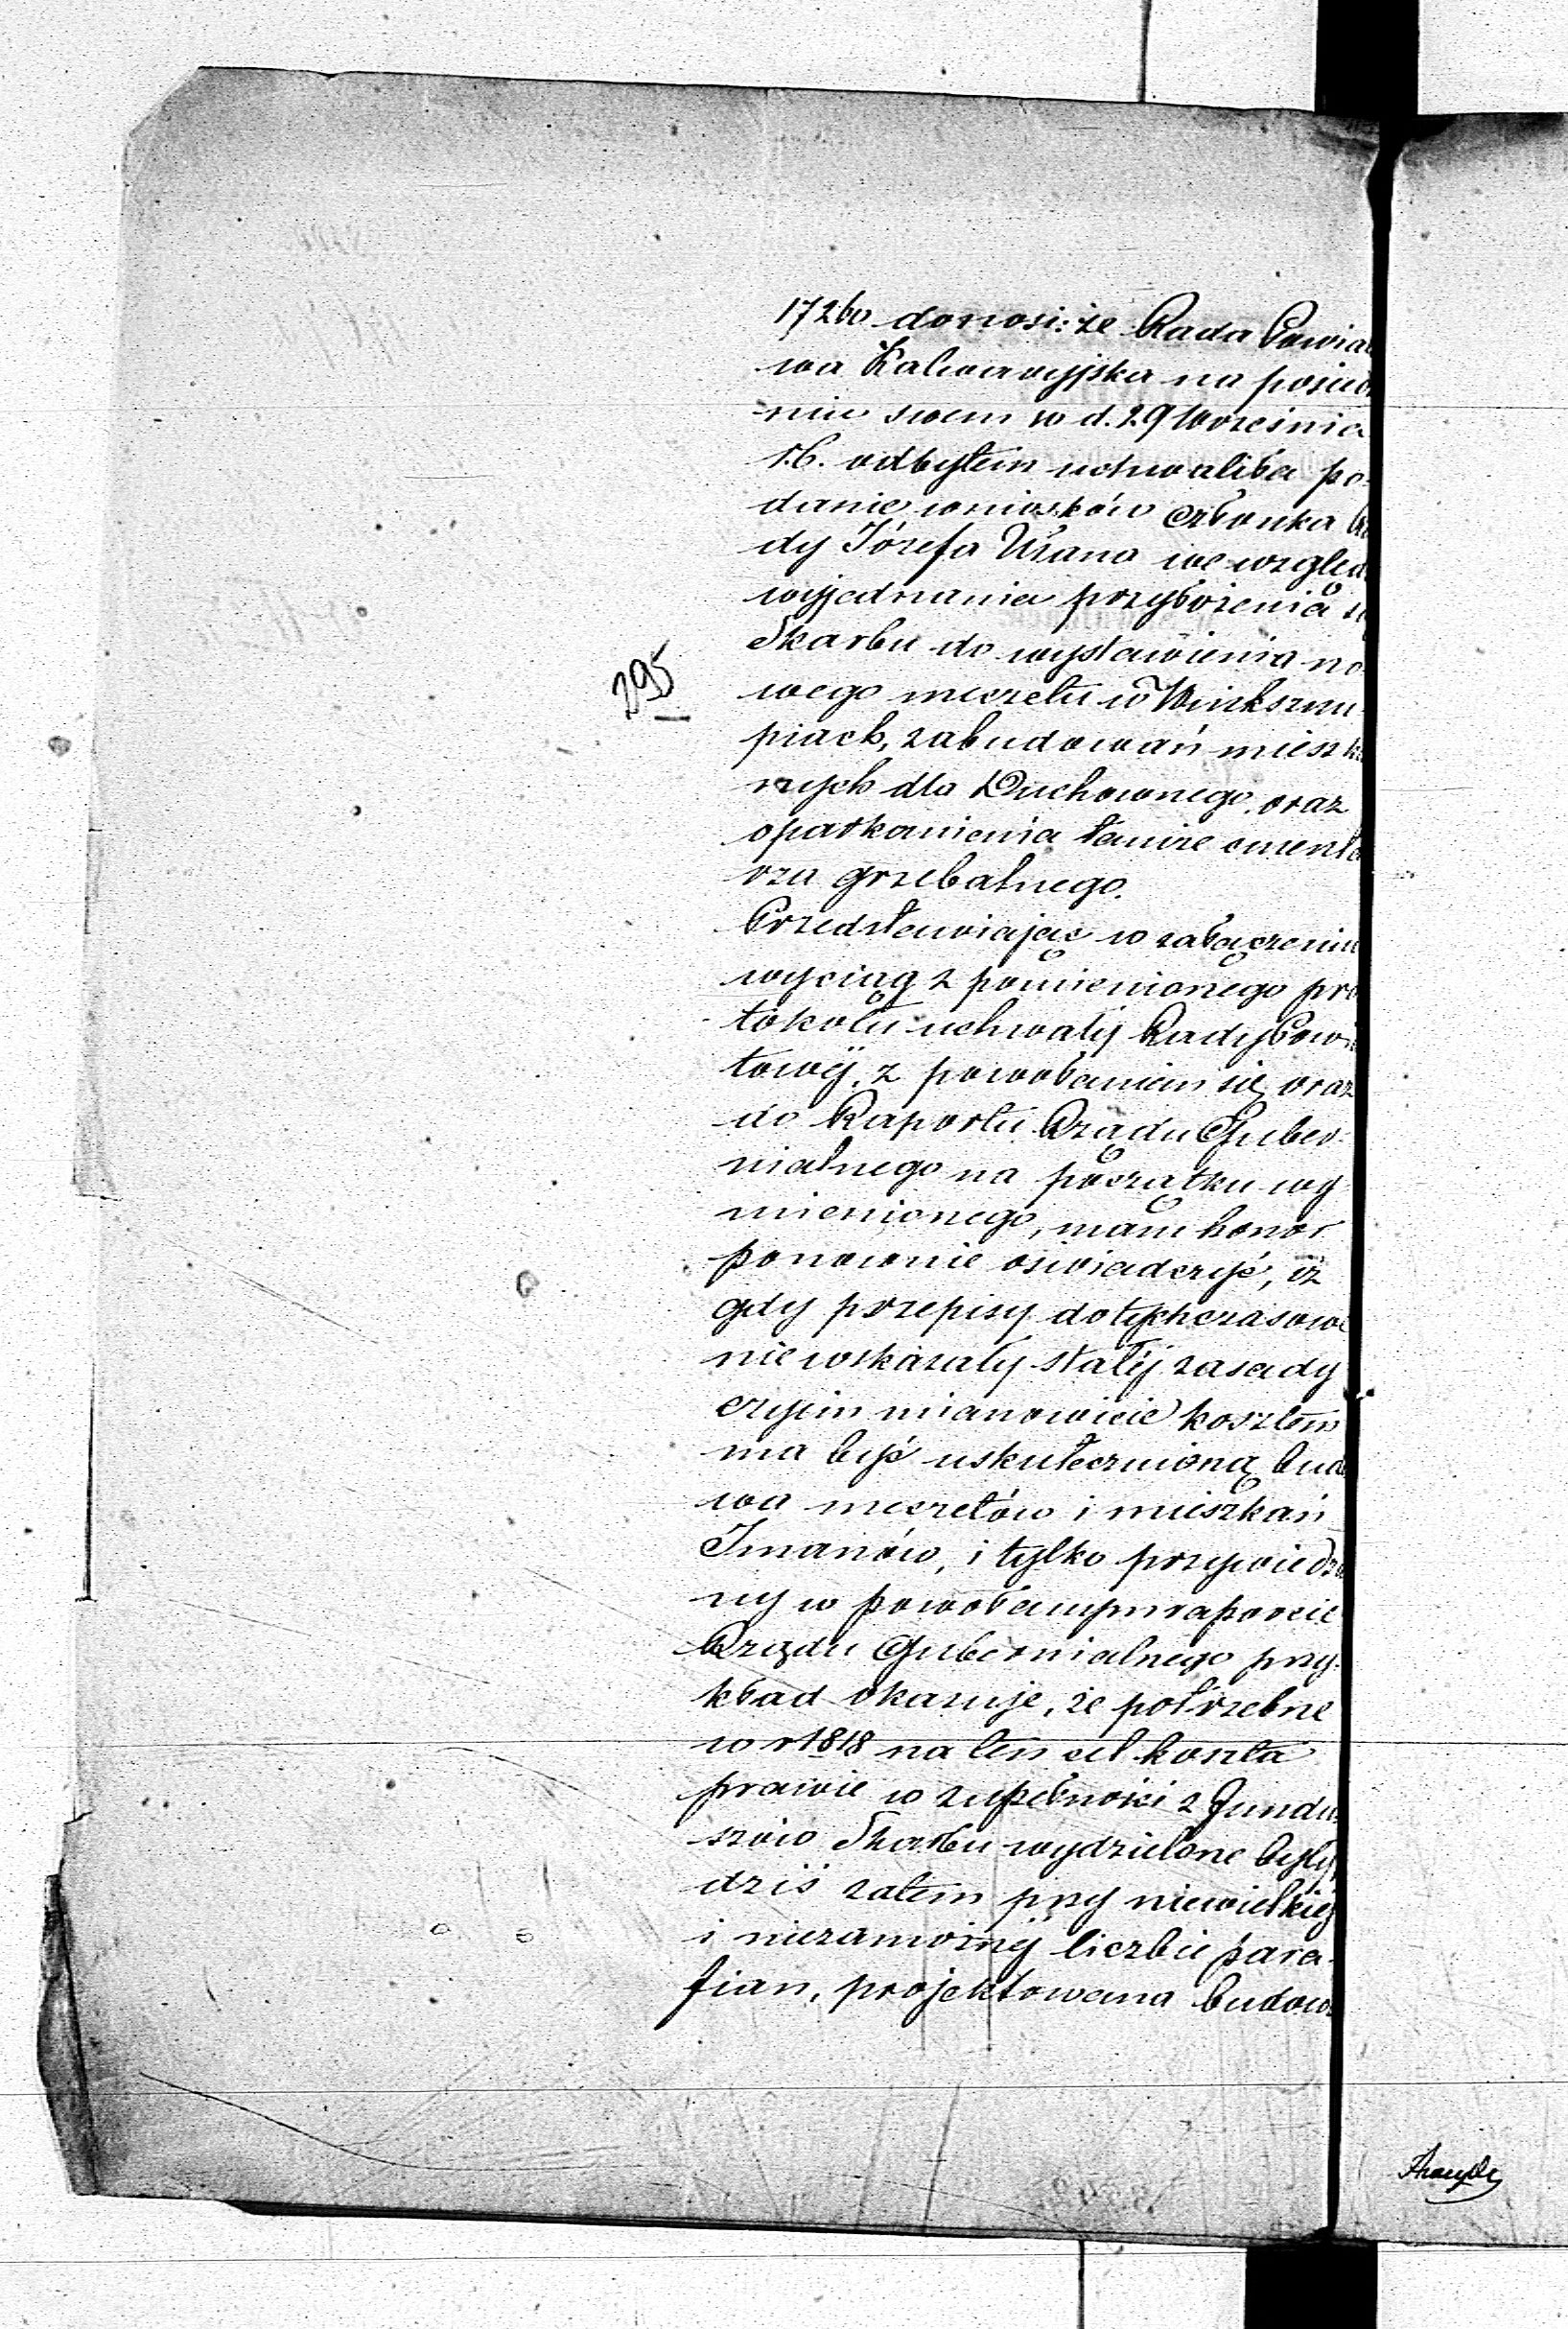 17260 donosi: że Rada Powia
wa Kalwaryjska na posied
niu swem w d. 29 Września
r.b. odbytem uchwaliła po-
danie wniosków członka Ra
dy Józefa Ułana we wzglę
wyjednania przyłożenia s
Skarbu do wystawienia no
295
wego meczetu w Winksznu
piach, zabudowań mieszka
nych dla Duchownego, oraz
oparkanienia tamże cmenta
rza grzebalnego.
Przedstawiając w załączeniu
wyciąg z pomienionego pro
tokołu uchwały Rady Powia
towéj, z powołaniem się oraz
do Raportu Rządu Guber-
nialnego na początku wy
mienionego, mam honor
ponownie oświadczyć, iż
gdy przepisy dotychczasowe
nie wskazały stałéj zasady
czyim mianowicie kosztem
ma być uskutecznioną budo
wa meczetów i mieszkań
Imanów, i tylko przywiedzio
ny w powołanym raporcie
Rządu Gubernialnego przy-
kład okazuje, że potrzebne
w r 1818 na ten cel koszta
prawie w zupełności z fundu
szów Skarbu wydzielone były,
dziś zatem przy niewielkiéj
i niezamożnéj liczbie para-
fian, projektowana budowa